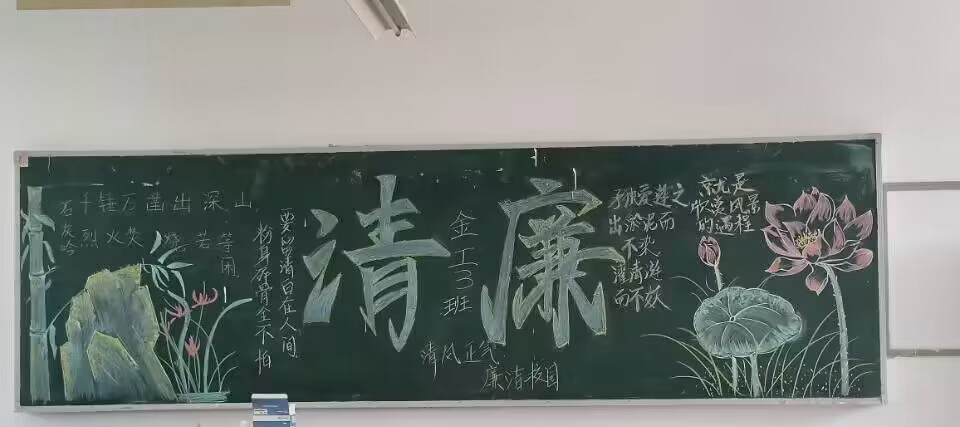 石灰吟
千锤万凿出深山
烈火焚烧若等
闲
粉身碎骨全不怕
要留清白在人间
清廉
金工3班
清风正气
廉清校园
独爱莲之
出淤泥而
不染
濯清涟
而不妖
就是
风景
的过程